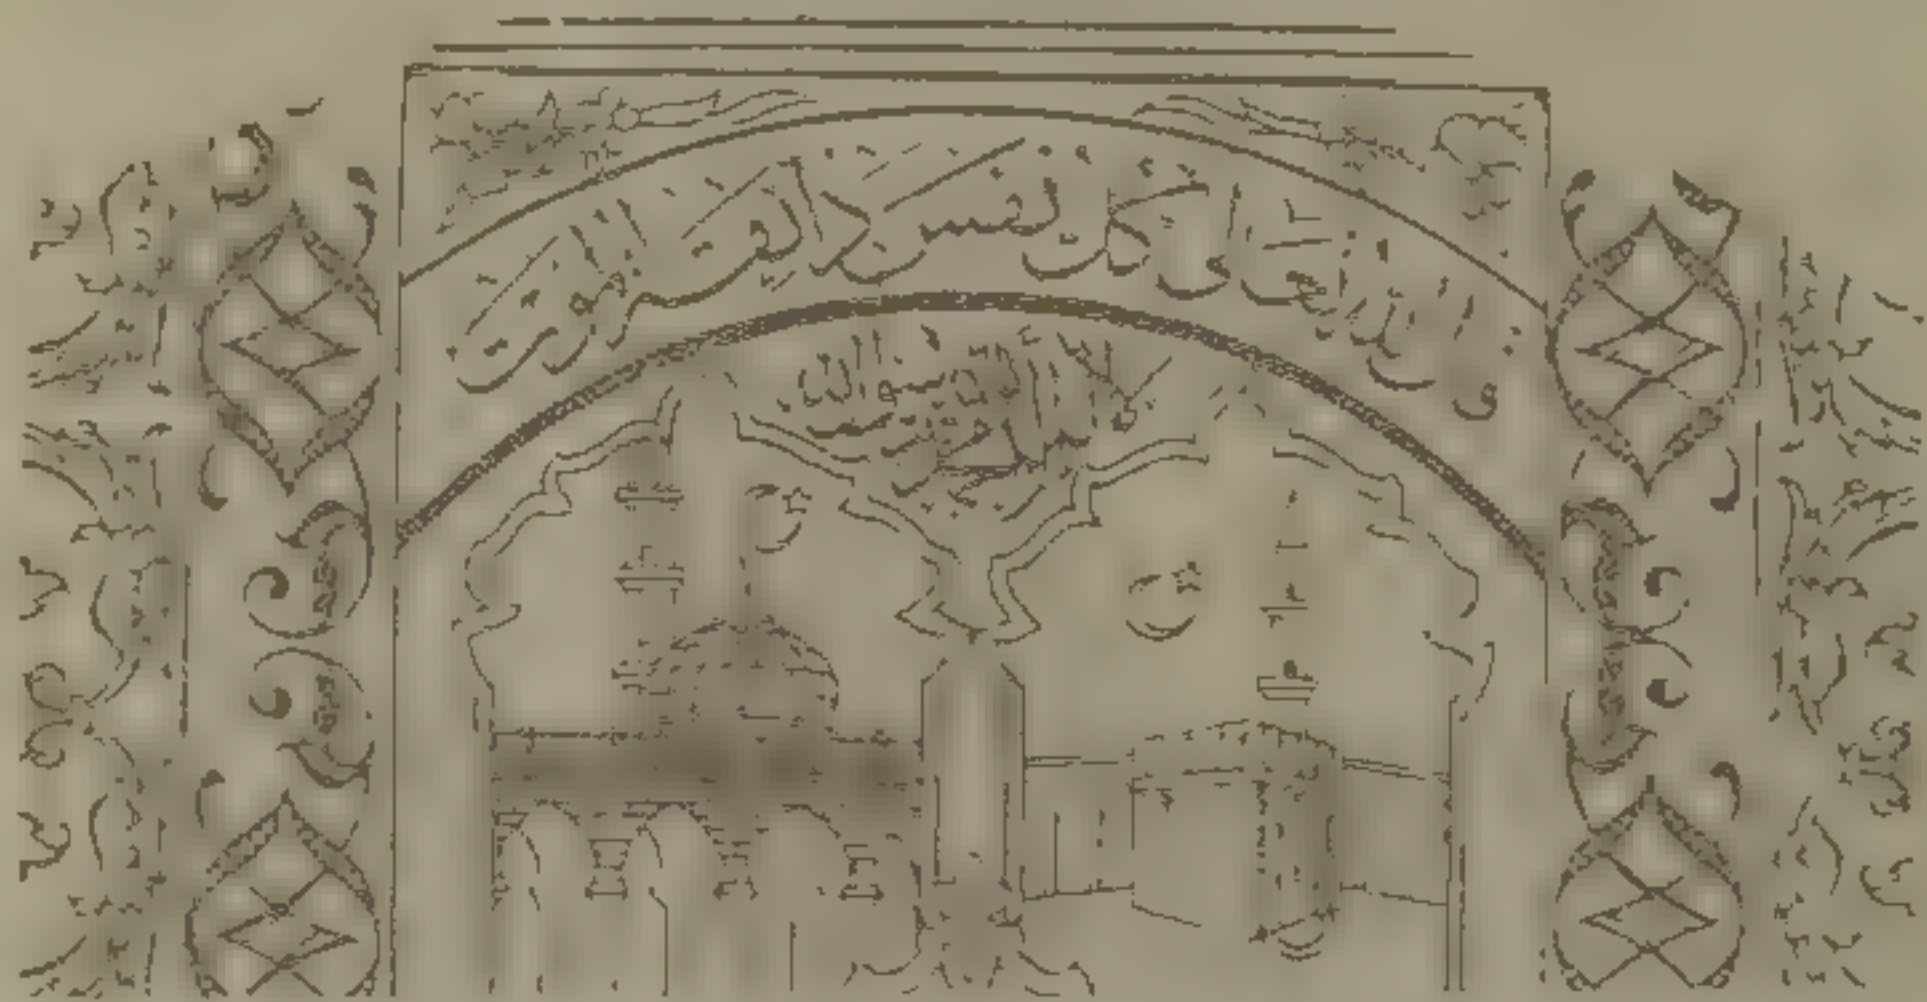 قال الله تعالى كل نفس ذائقة الموت
لا اله الا الله محمد رسول الله